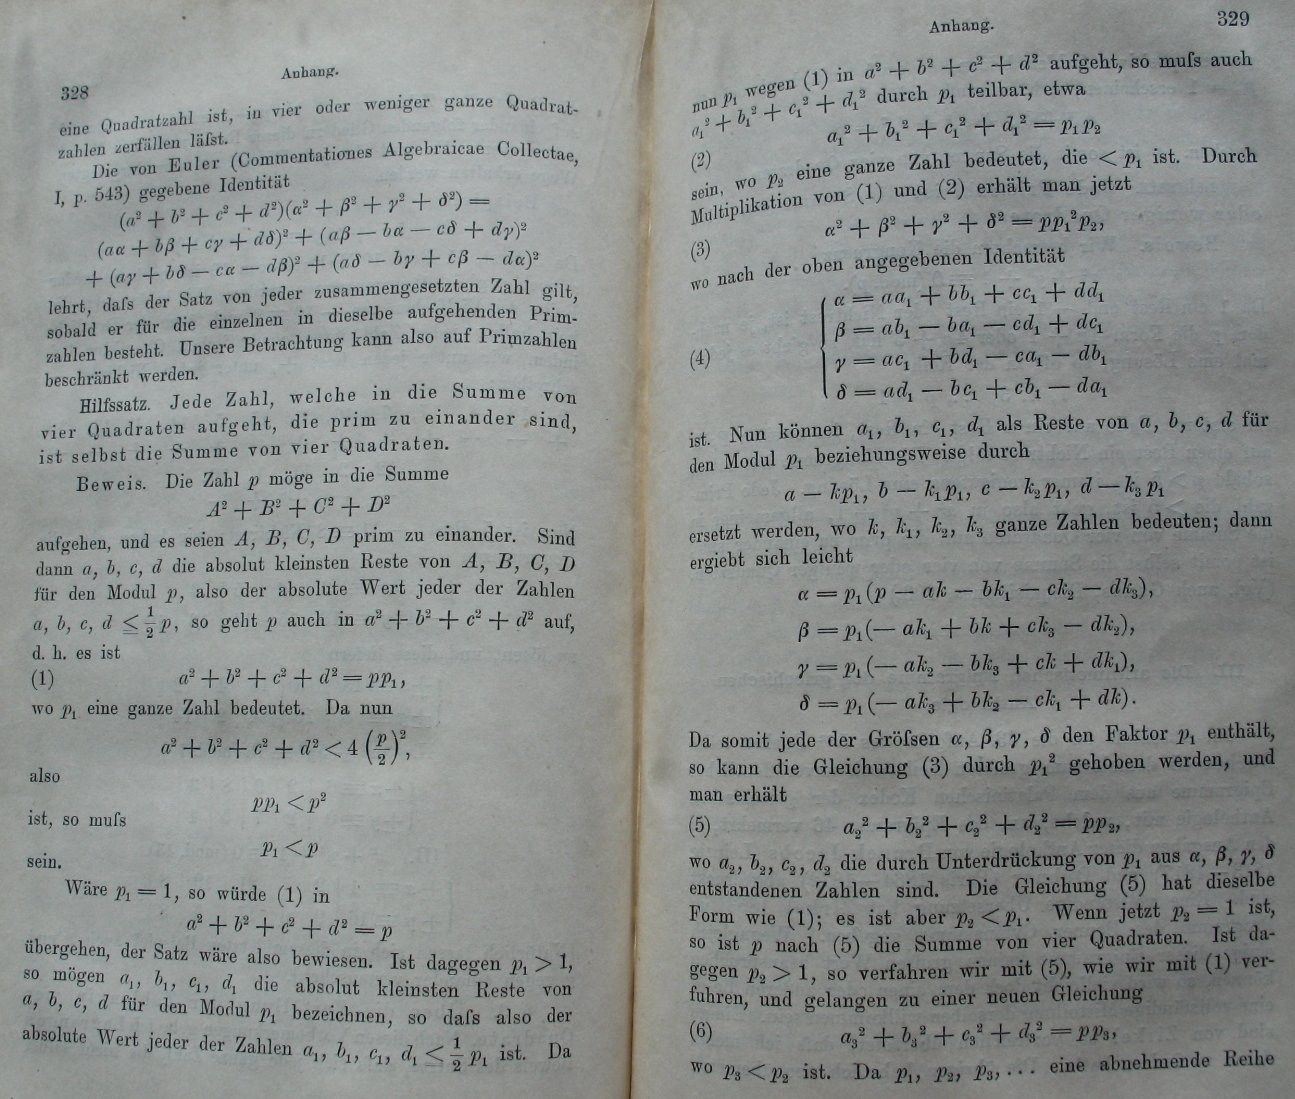 328
Anhang.
eine Quadratzahl ist, in vier oder weniger ganze Quadrat-
zahlen zerfällen läſst.
Die von Euler (Commentationes Algebraicae Collectae,
I, p. 543) gegebene Identität
(a² + b² + c² + d²)(α² + β² + γ² + δ²) =
(aα + bβ + cγ + dδ)² + (aβ − bα − cδ + dγ)²
+ (aγ + bδ − cα − dβ)² + (aδ − bγ + cβ − dα)²
lehrt, daſs der Satz von jeder zusammengesetzten Zahl gilt,
sobald er für die einzelnen in dieselbe aufgehenden Prim-
zahlen besteht. Unsere Betrachtung kann also auf Primzahlen
beschränkt werden.
Hilfssatz. Jede Zahl, welche in die Summe von
vier Quadraten aufgeht, die prim zu einander sind,
ist selbst die Summe von vier Quadraten.
Beweis. Die Zahl p möge in die Summe
A² + B² + C² + D²
aufgehen, und es seien A, B, C, D prim zu einander. Sind
dann a, b, c, d die absolut kleinsten Reste von A, B, C, D
für den Modul p, also der absolute Wert jeder der Zahlen
a, b, c, d ≦ 1/2 p, so geht p auch in a² + b² + c² + d² auf,
d. h. es ist
(1) a² + b² + c² + d² = pp₁,
wo p₁ eine ganze Zahl bedeutet. Da nun
a² + b² + c² + d² < 4 (p/2)²,
also
pp₁ < p²
ist, so muſs
p₁ < p
sein.
Wäre p₁ = 1, so würde (1) in
a² + b² + c² + d² = p
übergehen, der Satz wäre also bewiesen. Ist dagegen p₁ > 1,
so mögen a₁, b₁, c₁, d₁ die absolut kleinsten Reste von
a, b, c, d für den Modul p₁ bezeichnen, so daſs also der
absolute Wert jeder der Zahlen a₁, b₁, c₁, d₁ ≦ 1/2 p₁ ist. Da
Anhang.
329
nun p₁ wegen (1) in a² + b² + c² + d² aufgeht, so muſs auch
a₁² + b₁² + c₁² + d₁² durch p₁ teilbar, etwa
(2) a₁² + b₁² + c₁² + d₁² = p₁p₂
sein, wo p₂ eine ganze Zahl bedeutet, die < p₁ ist. Durch
Multiplikation von (1) und (2) erhält man jetzt
(3) α² + β² + γ² + δ² = pp₁²p₂,
wo nach der oben angegebenen Identität
α = aa₁ + bb₁ + cc₁ + dd₁
β = ab₁ − ba₁ − cd₁ + dc₁
(4) γ = ac₁ + bd₁ − ca₁ − db₁
δ = ad₁ − bc₁ + cb₁ − da₁
ist. Nun können a₁, b₁, c₁, d₁ als Reste von a, b, c, d für
den Modul p₁ beziehungsweise durch
a − kp₁, b − k₁p₁, c − k₂p₁, d − k₃p₁
ersetzt werden, wo k, k₁, k₂, k₃ ganze Zahlen bedeuten; dann
ergiebt sich leicht
α = p₁(p − ak − bk₁ − ck₂ − dk₃),
β = p₁(− ak₁ + bk + ck₃ − dk₂),
γ = p₁(− ak₂ − bk₃ + ck + dk₁),
δ = p₁(− ak₃ + bk₂ − ck₁ + dk).
Da somit jede der Gröſsen α, β, γ, δ den Faktor p₁ enthält,
so kann die Gleichung (3) durch p₁² gehoben werden, und
man erhält
(5) a₂² + b₂² + c₂² + d₂² = pp₂,
wo a₂, b₂, c₂, d₂ die durch Unterdrückung von p₁ aus α, β, γ, δ
entstandenen Zahlen sind. Die Gleichung (5) hat dieselbe
Form wie (1); es ist aber p₂ < p₁. Wenn jetzt p₂ = 1 ist,
so ist p nach (5) die Summe von vier Quadraten. Ist da-
gegen p₂ > 1, so verfahren wir mit (5), wie wir mit (1) ver-
fuhren, und gelangen zu einer neuen Gleichung
(6) a₃² + b₃² + c₃² + d₃² = pp₃,
wo p₃ < p₂ ist. Da p₁, p₂, p₃, ... eine abnehmende Reihe